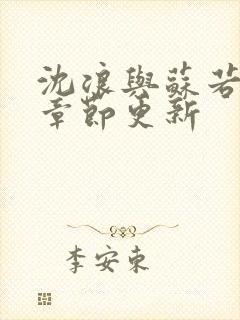 沈浪與蘇若
章節更新
李安東